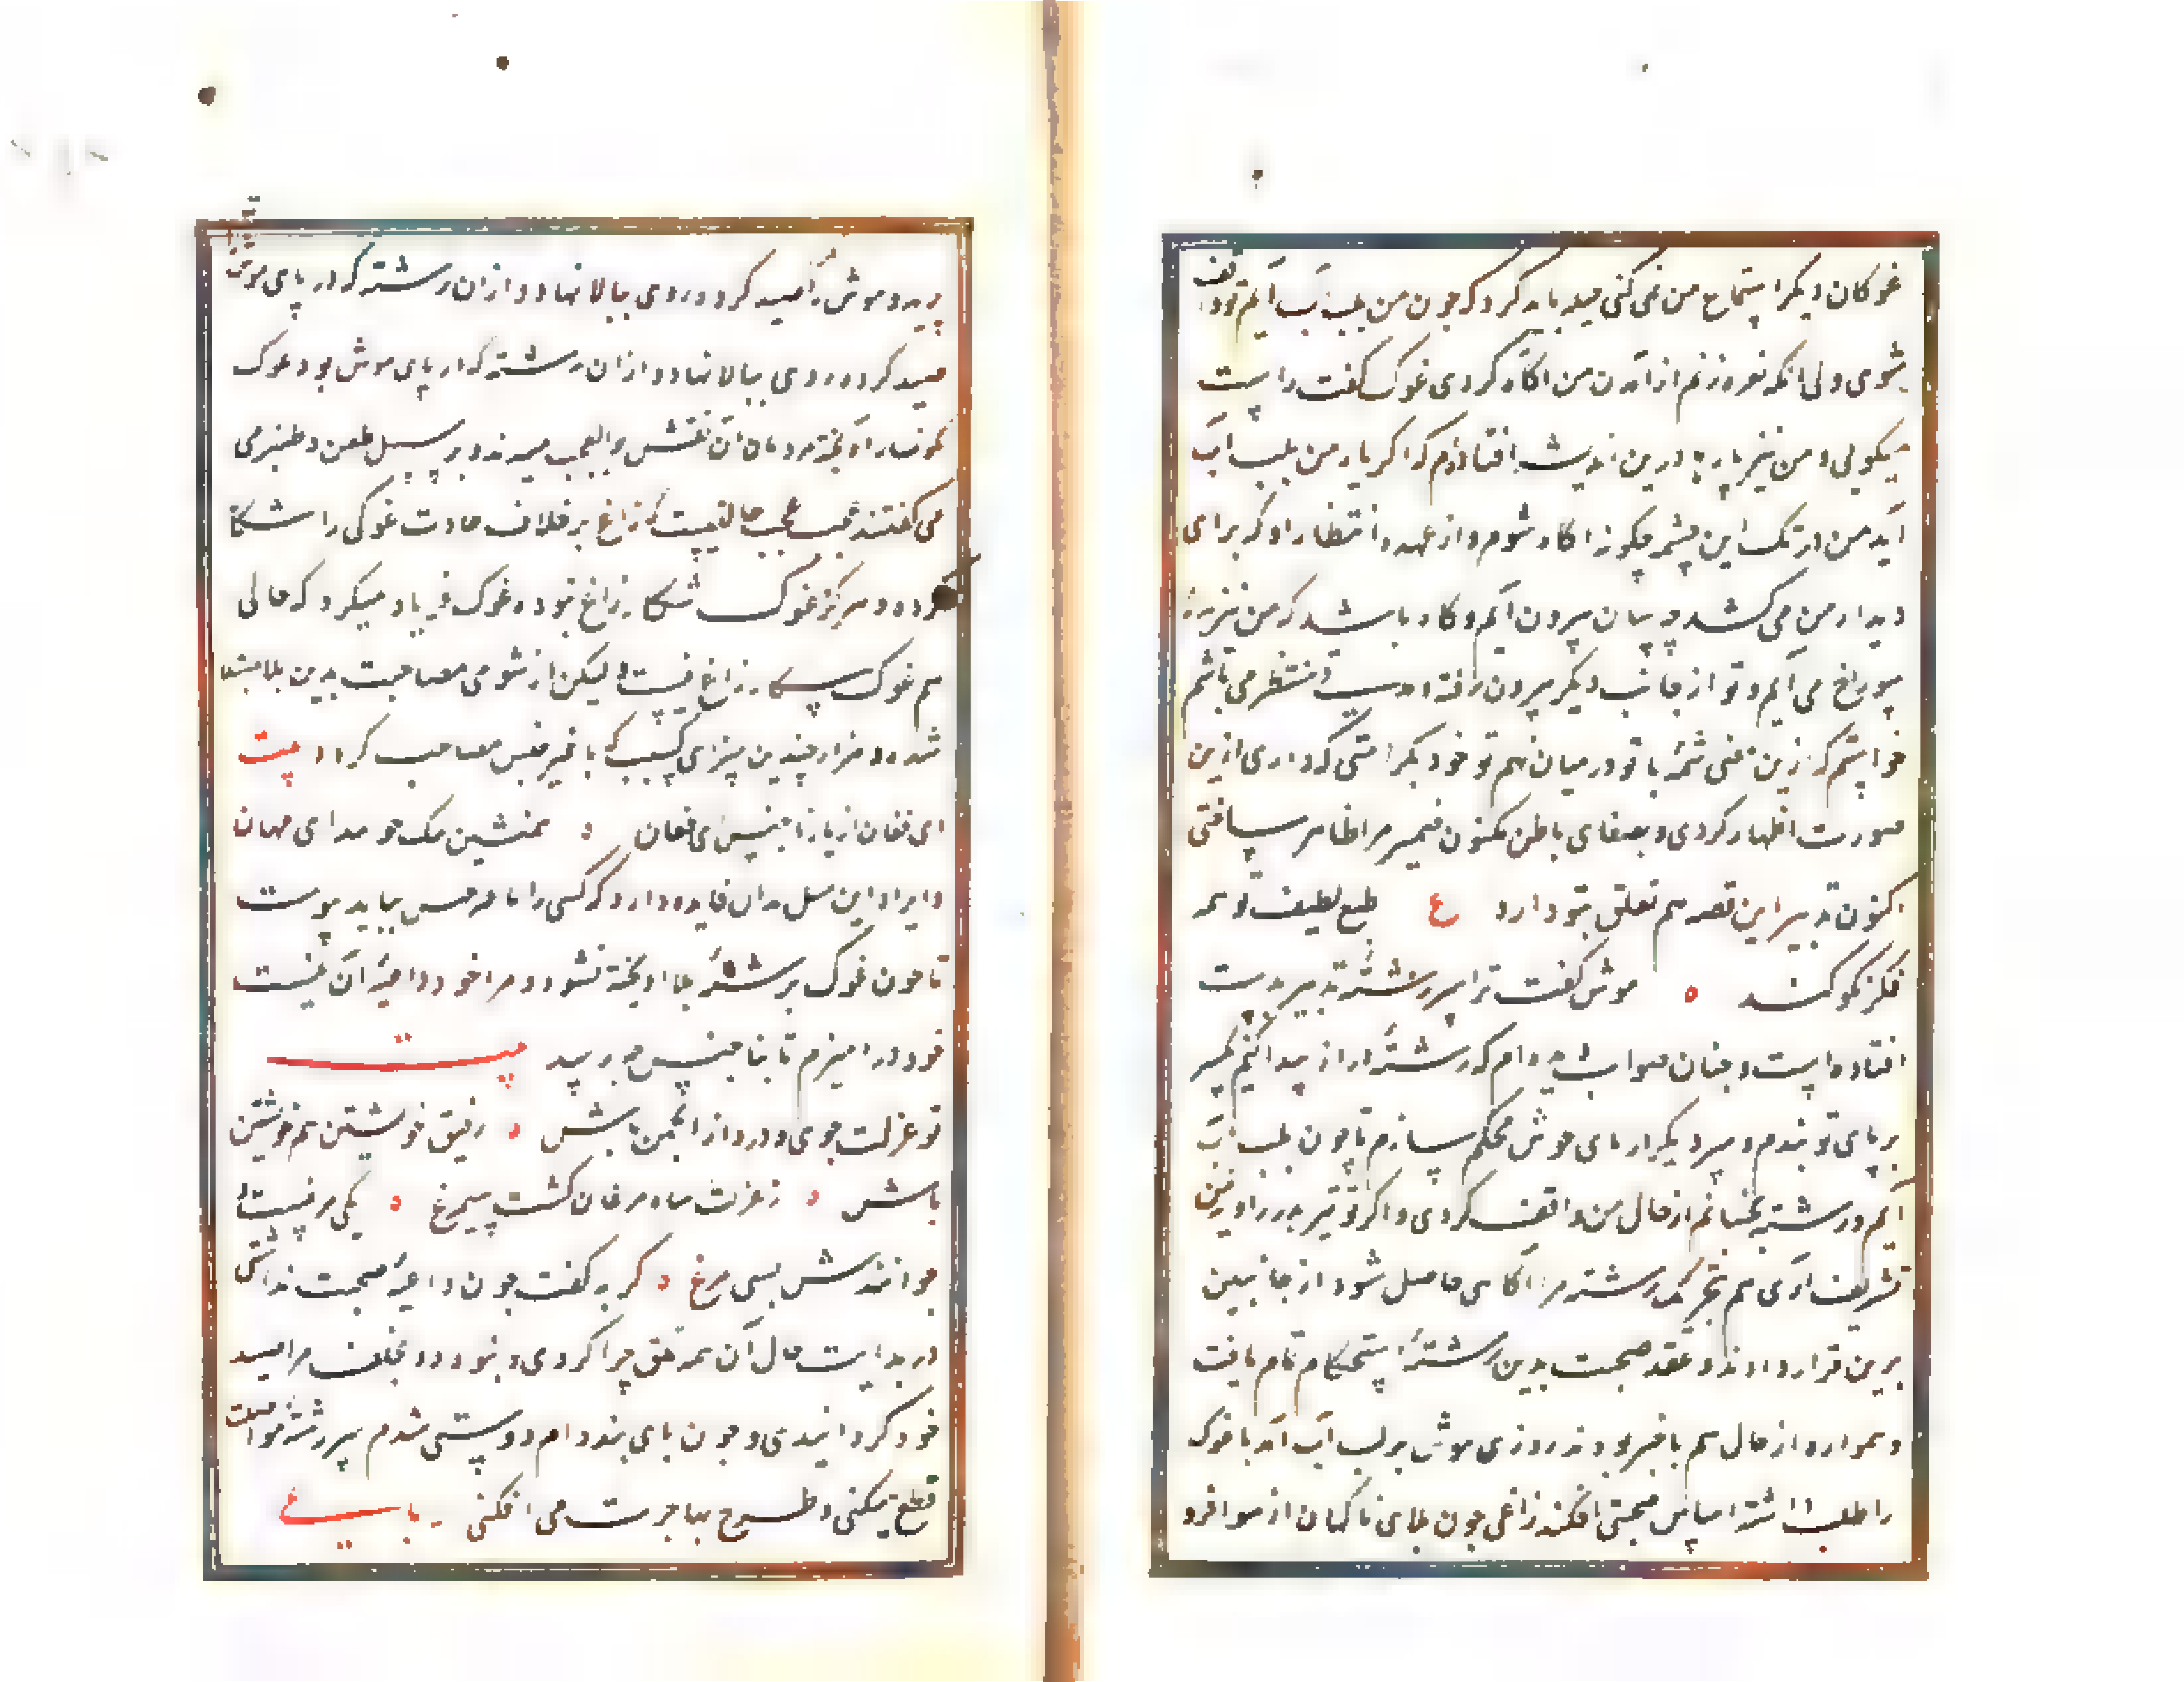 غوکان دیکر استماع من نمی کنی حیله باید کرد که چون من بلب آب آیم تو واقف
شوی و بی انکه نعره زنم از آمدن من اکاه کردی غوک کفت راست
میکویی و من نیز بارها درین اندیشه افتاده‌ام که اکر یار من بلب آب
آید من در تک این چشمه چکونه اکاه شوم و از عهده انتظار او که برای
دیدار من می کشد چه سان بیرون آیم و کاه باشد که من نیز بدر
سوراخ می آیم و تو از جانب دیکر بیرون رفته و مدتی منتظر می باشم
خواستم که ازین معنی شمه با تو در میان نهم تو خود بکرامتی که داری ازین
صورت اظهار کردی و بصفای باطن مکنون ضمیر مرا ظاهر ساختی
اکنون تدبیر این قصه هم تعلق بتو دارد ع طبع لطیف تو همه
فکر نکو کند ه موش کفت ترا سررشته تدبیر بدست
افتاده است و چنان صواب دیده‌ام که رشته دراز پیدا کنم یکسر
بر پای تو بندم و سر دیکر در پای خویش محکم سازم تا چون بلب آب
آیم و رشته بجنبانم از حال من واقف کردی و اکر تو نیز بدر زاویه من
تشریف آری هم بتحریک رشته مرا اکاهی حاصل شود از جانبین
برین قرار دادند و عقد صحبت بدین رشته استحکام تمام یافت
و همواره از حال هم باخبر بودند روزی موش بر لب آب آمد تا غوک
را طلب داشته اساس صحبتی افکند زاغی چون بلای ناکهان از هوا فرو
پرید و موش را صید کرد و روی ببالا نهاد و از ان رشته که در پای موش
صید کرد و روی ببالا نهاد و از ان رشته که در پای موش بود غوک
نکونسار آویخته مردمان آن نقش بوالعجب میدیدند و بر سبیل طعن و طنز می
می کفتند عجب حالتیست که زاغ بر خلاف عادت غوکی را شکار
کرده و هرکز غوک شکار زاغ نبود و غوک فریاد میکرد که حالی
هم غوک شکار زاغ نیست لیکن از شومی مصاحبت بدین بلا مبتلا
شده و هزار چندین سزای کسیست که با غیر جنس مصاحب کردد بیت
ای فغان از یار ناجنس ای فغان ه همنشین نیک جوید ای مهان
و ایراد این مثل بدان فایده دارد که کسی را با غیر جنس نباید پیوست
تا چون غوک بر رشته بلا اویخته نشود و مرا خود داعیه آن نیست
خود درامیزم تا بناجنس چه رسد بیت
تو عزلت جوی و دور از انجمن باش ه رفیق خویشتن هم خویشتن
باش ه ز عزت شاه مرغان کشت سیمرغ ه یکی مرغیست و
خوانندش بسی مرغ ه کربه کفت چون داعیه صحبت نداشتی
در بدایت حال آن همه تملق چرا کردی و بتودد و تخلف مرا صید
خود کردانیدی و چون پای بند دام دوستی شدم سررشته مواصلت
قطع میکنی و طرح مهاجرت می افکنی